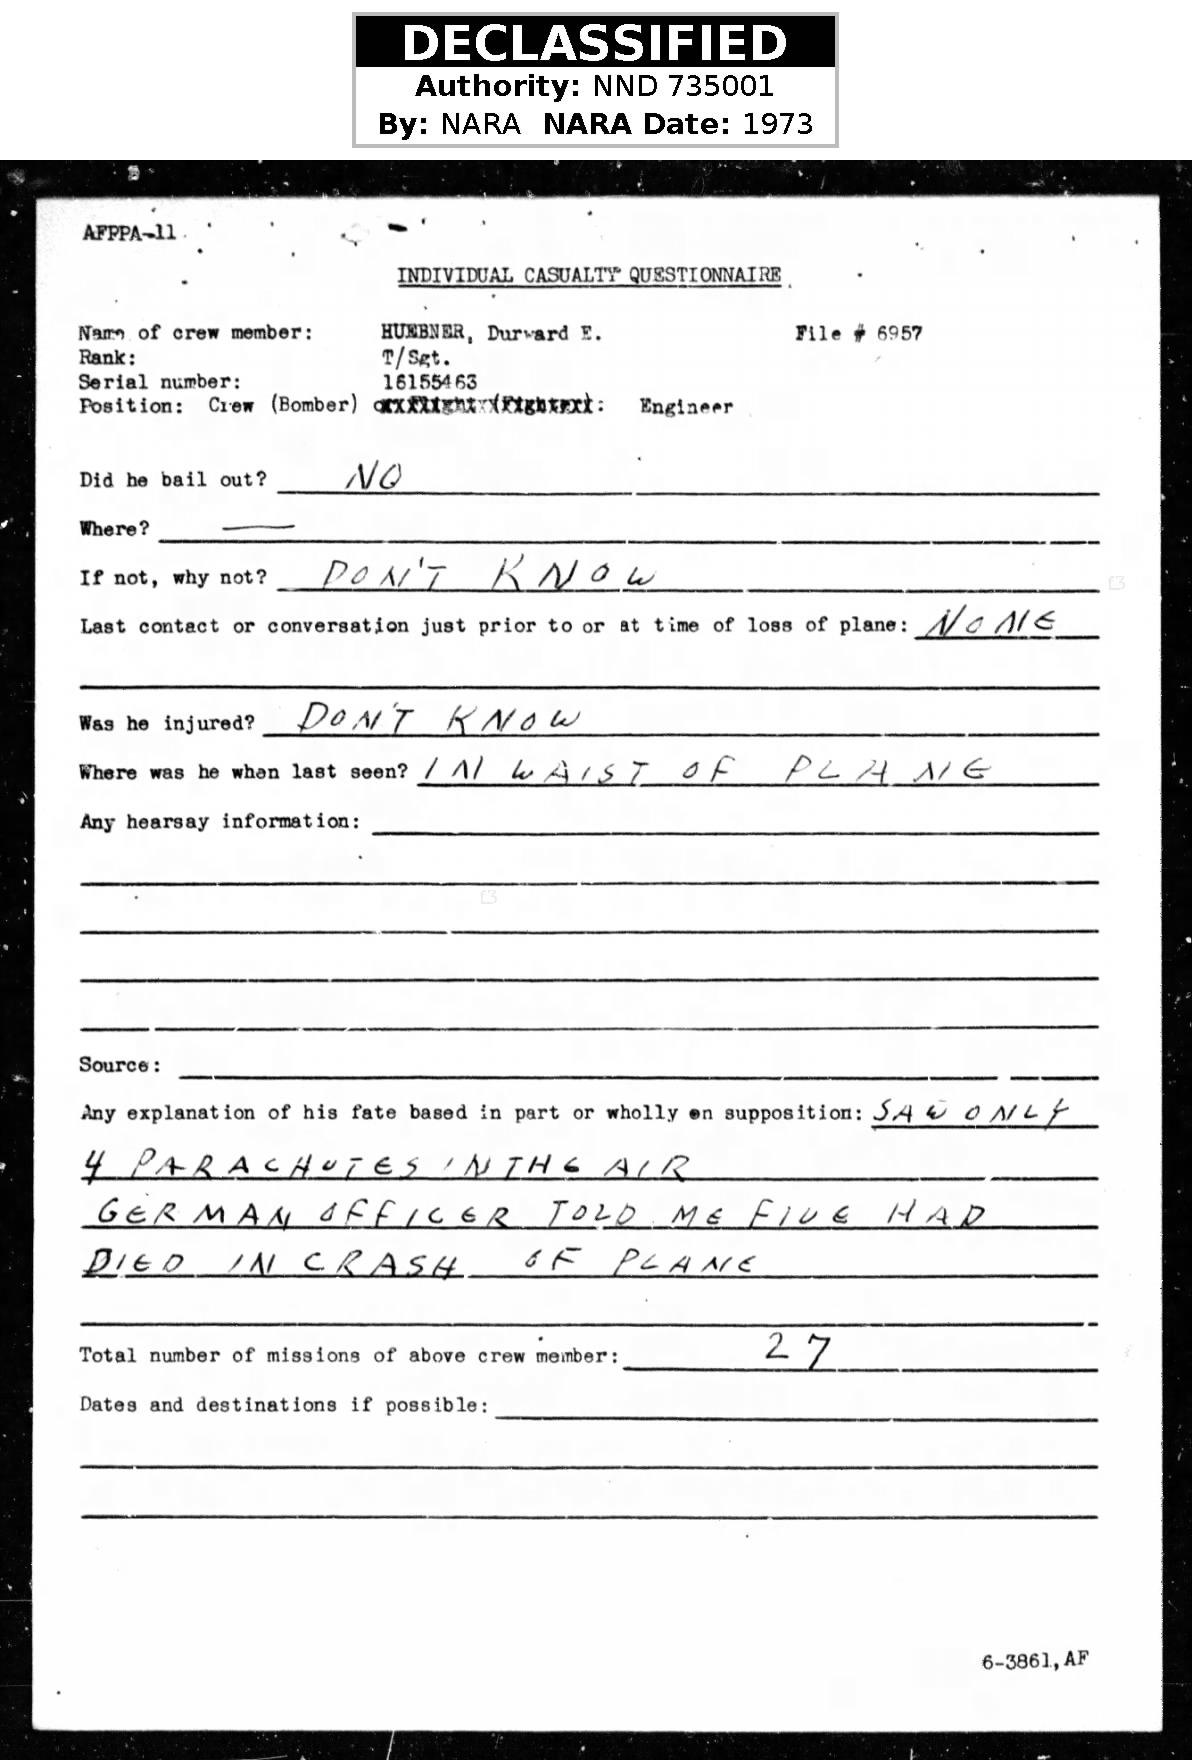 DECLASSIFIED
Authority: NND 735001
By: NARA NARA Date: 1973
AFPPA-11
INDIVIDUAL CASUALTY QUESTIONNAIRE
Name of crew member: HUEBNER, Durward E. File # 6957
Rank: T/Sgt.
Serial number: 16155463
Position: Crew (Bomber) Engineer
Did he bail out? NO
Where? —
If not, why not? DON'T KNOW
Last contact or conversation just prior to or at time of loss of plane: NONE
Was he injured? DON'T KNOW
Where was he when last seen? IN WAIST OF PLANE
Any hearsay information:
Source:
Any explanation of his fate based in part or wholly on supposition: SAW ONLY
4 PARACHUTES IN THE AIR
GERMAN OFFICER TOLD ME FIVE HAD
DIED IN CRASH OF PLANE
Total number of missions of above crew member: 27
Dates and destinations if possible:
6-3861, AF